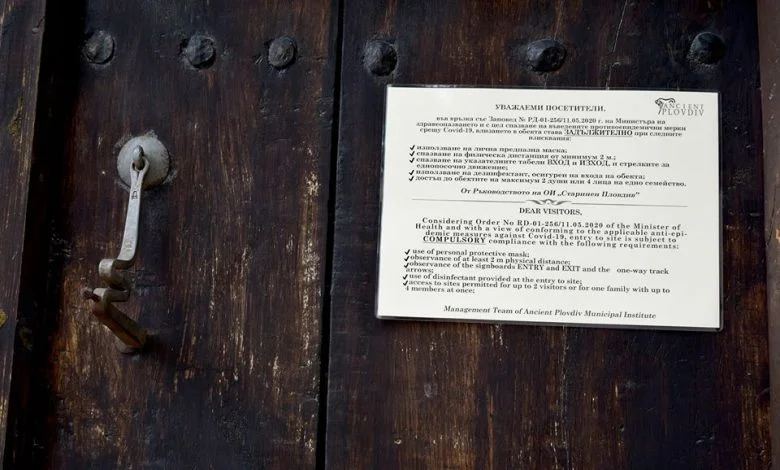 УВАЖАЕМИ ПОСЕТИТЕЛИ,
ANCIENT
PLOVDIV
във връзка със Заповед № РД-01-256/11.05.2020 г. на Министъра на
здравеопазването и с цел спазване на въведените противоепидемични мерки
срещу Covid-19, влизането в обекта става ЗАДЪЛЖИТЕЛНО при следните
изисквания:
✓използване на лична предпазна маска;
✓спазване на физическа дистанция от минимум 2 м.;
✓спазване на указателните табели ВХОД и ИЗХОД, и стрелките за
еднопосочно движение;
✓използване на дезинфектант, осигурен на входа на обекта;
✓достъп до обектите на максимум 2 души или 4 лица на едно семейство.
От Ръководството на ОИ „Старинен Пловдив“
DEAR VISITORS,
Considering Order No RD-01-256/11.05.2020 of the Minister of
Health and with a view of conforming to the applicable anti-epi-
demic measures against Covid-19, entry to site is subject to
COMPULSORY compliance with the following requirements:
✓use of personal protective mask;
✓observance of at least 2 m physical distance;
✓observance of the signboards ENTRY and EXIT and the one-way track
arrows;
✓use of disinfectant provided at the entry to site;
✓access to sites permitted for up to 2 visitors or for one family with up to
4 members at once;
Management Team of Ancient Plovdiv Municipal Institute